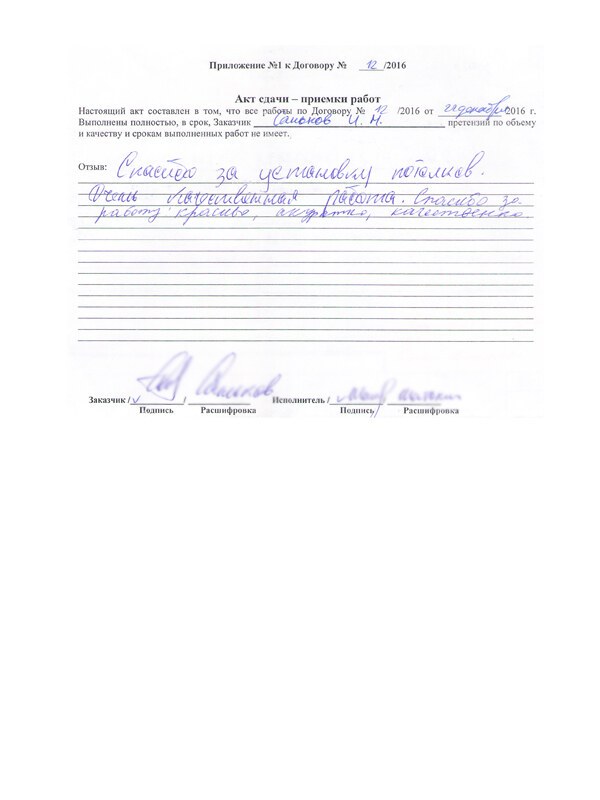 Приложение №1 к Договору № 12/2016
Акт сдачи – приемки работ
Настоящий акт составлен в том, что все работы по Договору № 12 /2016 от декабря 2016 г.
Выполнены полностью, в срок, Заказчик И. М. претензий по объему
и качеству и срокам выполненных работ не имеет.
Отзыв: Спасибо за установку потолков.
Очень качественная работа. Спасибо за
работу красиво, аккуратно, качественно
Заказчик / / Исполнитель / /
Подпись Расшифровка Подпись Расшифровка